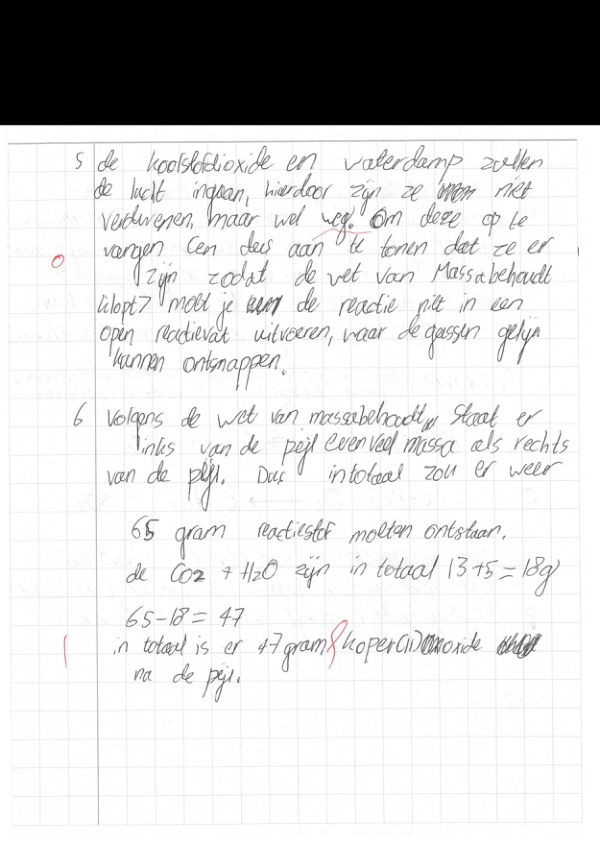 5 de koolstofdioxide en waterdamp zullen
de lucht ingaan, hierdoor zijn ze niet
verdwenen, maar wel weg. Om deze op te
vangen (en dus aan te tonen dat ze er
0 zijn zodat de wet van Massabehoudt
klopt) moet je de reactie niet in een
open reactievat uitvoeren, waar de gassen gelijk
kunnen ontsnappen.
6 Volgens de wet van massabehoudt, staat er
links van de pijl evenveel massa als rechts
van de pijl. Dus intotaal zou er weer
65 gram reactiestof moeten ontstaan.
de CO2 + H2O zijn in totaal 13+5=18g
65-18= 47
1 in totaal is er 47 gram koper(II)oxide
na de pijl.